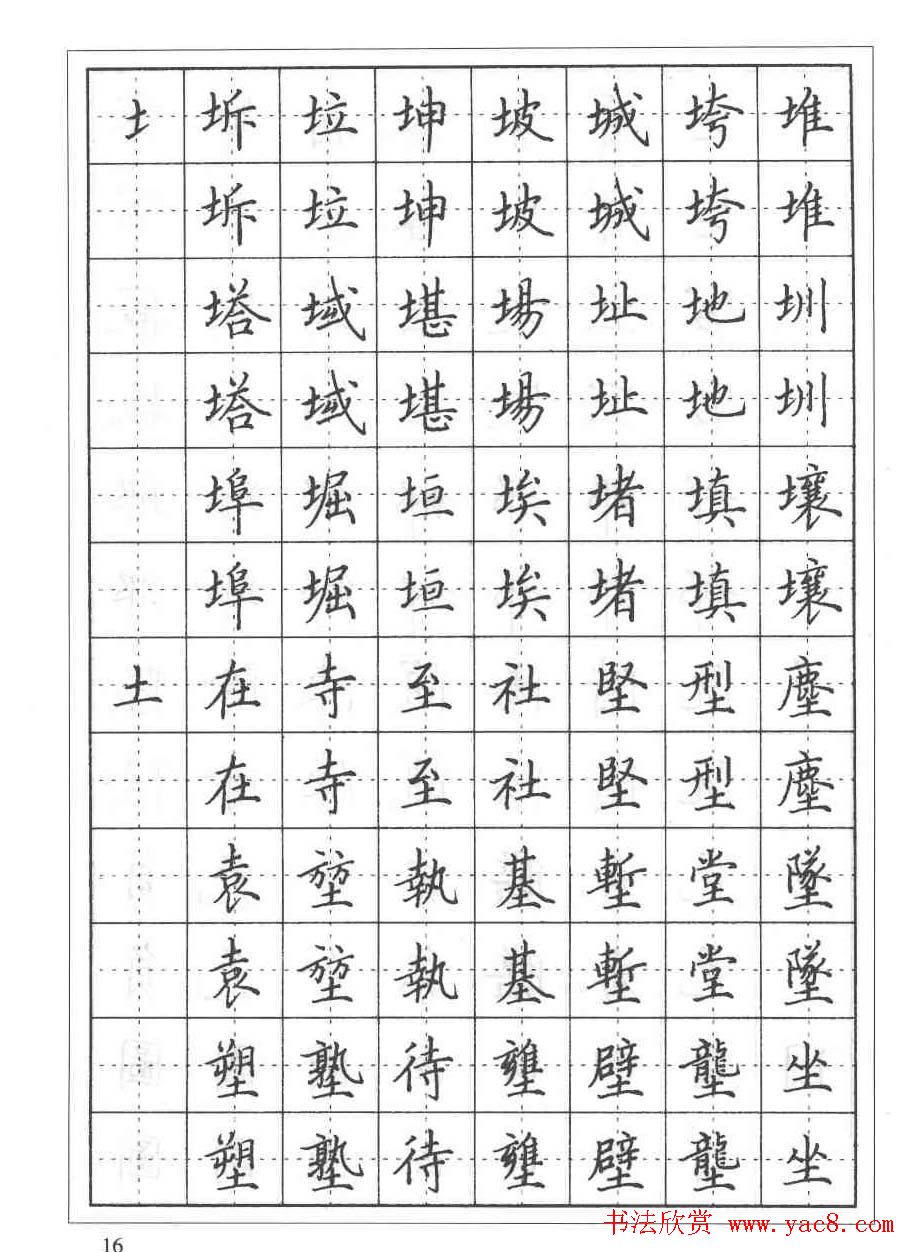 土 坼 垃 坤 坡 城 垮 堆
坼 垃 坤 坡 城 垮 堆
塔 域 堪 場 址 地 圳
塔 域 堪 場 址 地 圳
埠 堀 垣 埃 堵 填 壤
埠 堀 垣 埃 堵 填 壤
土 在 寺 至 社 堅 型 塵
在 寺 至 社 堅 型 塵
袁 堃 執 基 塹 堂 墜
袁 堃 執 基 塹 堂 墜
塑 塾 待 壅 壁 壟 坐
塑 塾 待 壅 壁 壟 坐
书法欣赏 www.yac8.com
16